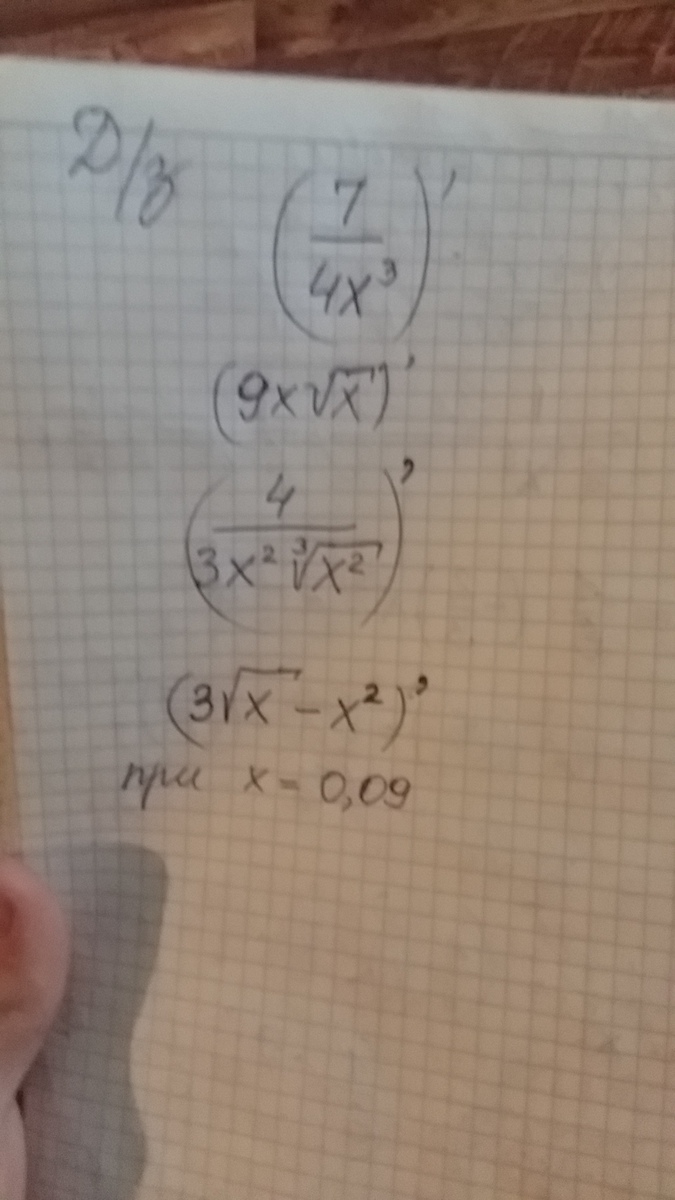 Д/з (7/4x³)'
(9x√x)'
(4/3x² ∛x²)'
(3√x - x²)'
при x = 0,09